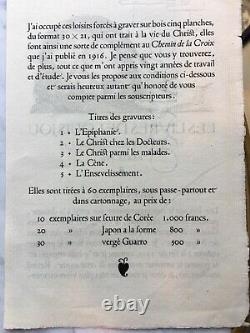 J'ai occupé ces loisirs forcés à graver sur bois cinq planches,
du format 30 × 21, qui ont trait à la vie du Christ, elles
sont ainsi une sorte de complément au Chemin de la Croix
que j'ai publié en 1916. Je pense que vous y trouverez,
de plus, tout ce que m'ont appris vingt années de travail
et d'étude. Je vous les propose aux conditions ci-dessous
et serais heureux autant qu'honoré de vous
compter parmi les souscripteurs.
Titres des gravures:
1 • L'Epiphanie.
2 • Le Christ chez les Docteurs.
3 • Le Christ parmi les malades.
4 • La Cène.
5 • L'Ensevelissement.
Elles sont tirées à 60 exemplaires, sous passe-partout et
dans cartonnage, au prix de:
10 exemplaires sur feutre de Corée 1.000 francs.
20 » Japon a la forme 800 »
30 » vergé Guarro 500 »